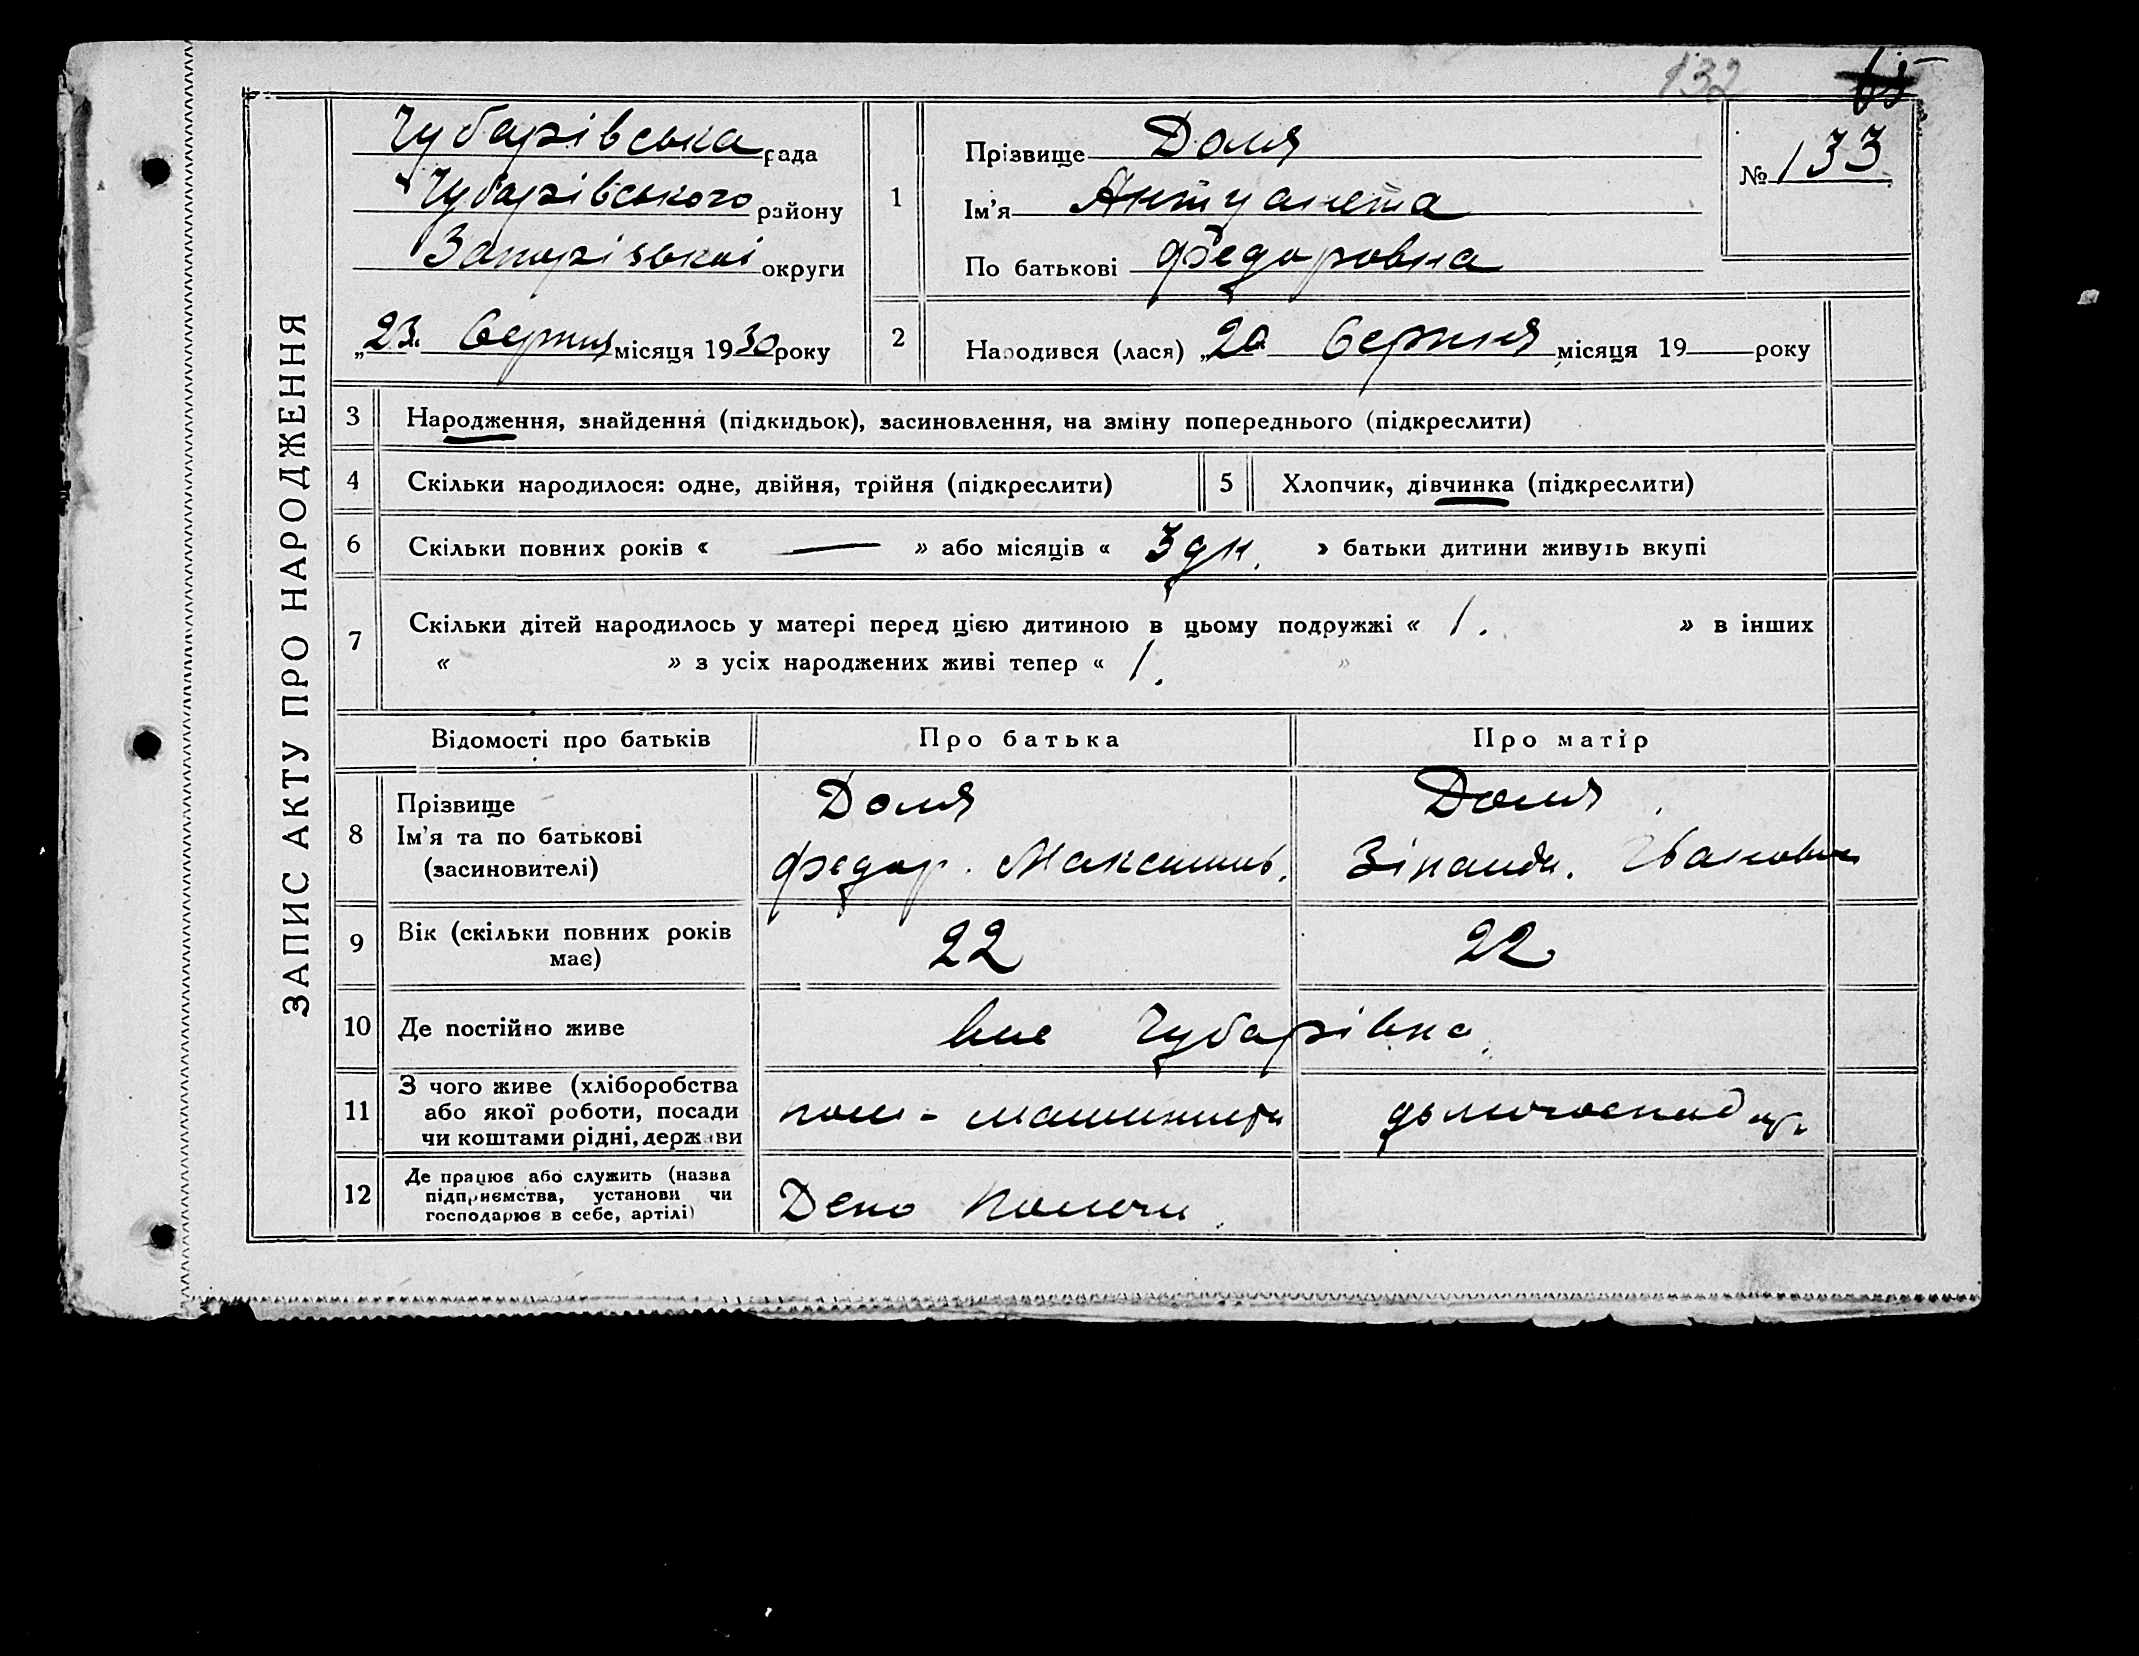 132
133
ЗАПИС АКТУ ПРО НАРОДЖЕННЯ
Чубарівська рада
Чубарівського району
Запорізької округи
„23“ Серпня місяця 1930 року
1
Прізвище Доля
Ім'я Антуанета
По батькові Федоровна
№ 133
2
Народився (лася) „20 Серпня місяця 19 — року
3 Народження, знайдення (підкидьок), засиновлення, на зміну попереднього (підкреслити)
4 Скільки народилося: одне, двійня, трійня (підкреслити)
5 Хлопчик, дівчинка (підкреслити)
6 Скільки повних років « — » або місяців « 3 дн. » батьки дитини живуть вкупі
7 Скільки дітей народилось у матері перед цією дитиною в цьому подружжі « 1. » в інших
« » з усіх народжених живі тепер « 1. »
Відомості про батьків Про батька Про матір
8 Прізвище Доля Доля
Ім'я та по батькові Федор. Максимив. Зінаида.
(засиновителі)
9 Вік (скільки повних років має) 22 22
10 Де постійно живе Чубарівка
11 З чого живе (хліборобства
або якої роботи, посади
чи коштами рідні, держави
пом - машиниста
12 Де працює або служить (назва
підприємства, установи чи
господарює в себе, артілі)
Депо Пологи